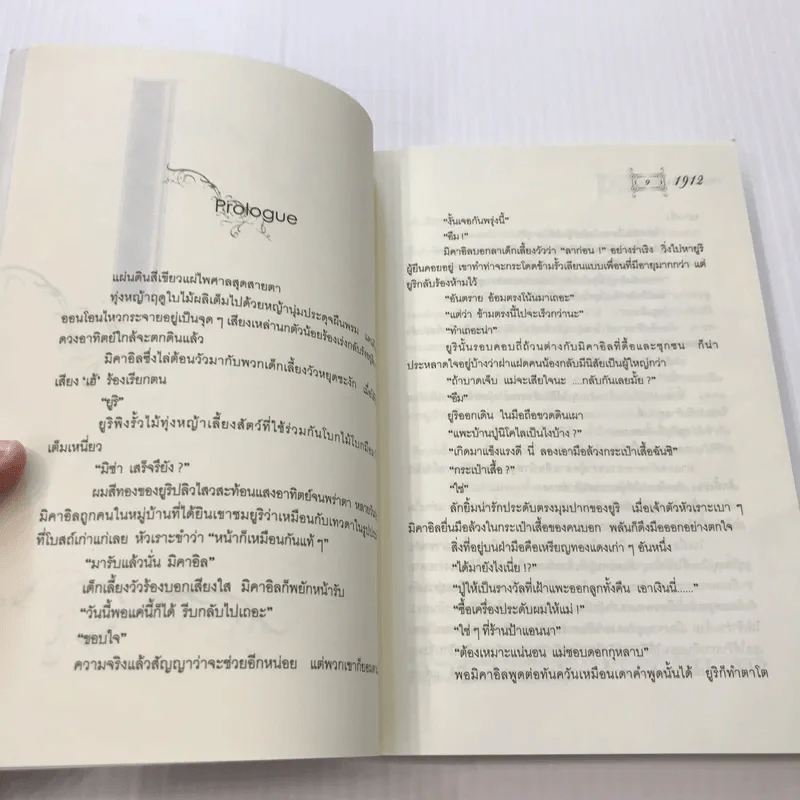 Prologue
แผ่นดินสีเขียวแผ่ไพศาลสุดสายตา
ทุ่งหญ้าฤดูใบไม้ผลิเต็มไปด้วยหญ้านุ่มประดุจผืนพรม
ออนโอนไหวกระจายอยู่เป็นจุด ๆ เสียงเหล่านกตัวน้อยร้องเร่งกลับรัง
ดวงอาทิตย์ใกล้จะตกดินแล้ว
มิคาอิลซึ่งไล่ต้อนวัวมากับพวกเด็กเลี้ยงวัวหยุดชะงัก เมื่อได้ยิน
เสียง 'เฮ้' ร้องเรียกตน
"ยูริ"
ยูริพิงรั้วไม้ทุ่งหญ้าเลี้ยงสัตว์ที่ใช้ร่วมกันโบกไม้โบกมือ
เต็มเหนี่ยว
"มิช่า เสร็จรึยัง ?"
ผมสีทองของยูริปลิวไสวสะท้อนแสงอาทิตย์จนพร่าตา
มิคาอิลถูกคนในหมู่บ้านที่ได้ยินเขาชมยูริว่าเหมือนกับเทวดาในรูป
ที่โบสถ์เก่าแก่เลย หัวเราะขำว่า "หน้าก็เหมือนกันแท้ ๆ"
"มารับแล้วนั่น มิคาอิล"
เด็กเลี้ยงวัวร้องบอกเสียงใส มิคาอิลก็พยักหน้ารับ
"วันนี้พอแค่นี้ก็ได้ รีบกลับไปเถอะ"
"ขอบใจ"
ความจริงแล้วสัญญาว่าจะช่วยอีกหน่อย แต่พวกเขาก็ยอม
๑ 1912
"งั้นเจอกันพรุ่งนี้"
"อืม !"
มิคาอิลบอกลาเด็กเลี้ยงวัวว่า "ลาก่อน !" อย่างร่าเริง วิ่งไปหายูริ
ผู้ยืนคอยอยู่ เขาทำท่าจะกระโดดข้ามรั้วเลียนแบบเพื่อนที่มีอายุมากกว่า แต่
ยูริกลับร้องห้ามไว้
"อันตราย อ้อมตรงโน้นมาเถอะ"
"แต่ว่า ข้ามตรงนี้ไปจะเร็วกว่านะ"
"ทำเถอะน่า"
ยูรินั้นรอบคอบถี่ถ้วนต่างกับมิคาอิลที่ดื้อและซุกซน ก็น่า
ประหลาดใจอยู่บ้างว่าฝาแฝดคนน้องกลับมีนิสัยเป็นผู้ใหญ่กว่า
"ถ้าบาดเจ็บ แม่จะเสียใจนะ ....กลับกันเลยมั้ย ?"
"อืม"
ยูริออกเดิน ในมือถือขวดดินเผา
"แพะบ้านปู่นิโคไลเป็นไงบ้าง ?"
"เกิดมาแข็งแรงดี นี่ ลองเอามือล้วงกระเป๋าเสื้อฉันซิ"
"กระเป๋าเสื้อ ?"
"ใช่"
ลักยิ้มน่ารักประดับตรงมุมปากของยูริ เมื่อเจ้าตัวหัวเราะเบา ๆ
มิคาอิลยื่นมือล้วงในกระเป๋าเสื้อของคนบอก พลันก็ดึงมือออกอย่างตกใจ
สิ่งที่อยู่บนฝ่ามือคือเหรียญทองแดงเก่า ๆ อันหนึ่ง
"ได้มายังไงเนี่ย !?"
"ปู่ให้เป็นรางวัลที่เฝ้าแพะออกลูกทั้งคืน เอาเงินนี่......"
"ซื้อเครื่องประดับผมให้แม่ !"
"ใช่ ๆ ที่ร้านป้าแอนนา"
"ต้องเหมาะแน่นอน แม่ชอบดอกกุหลาบ"
พอมิคาอิลพูดต่อทันควันเหมือนเดาคำพูดนั้นได้ ยูริก็ทำตาโต